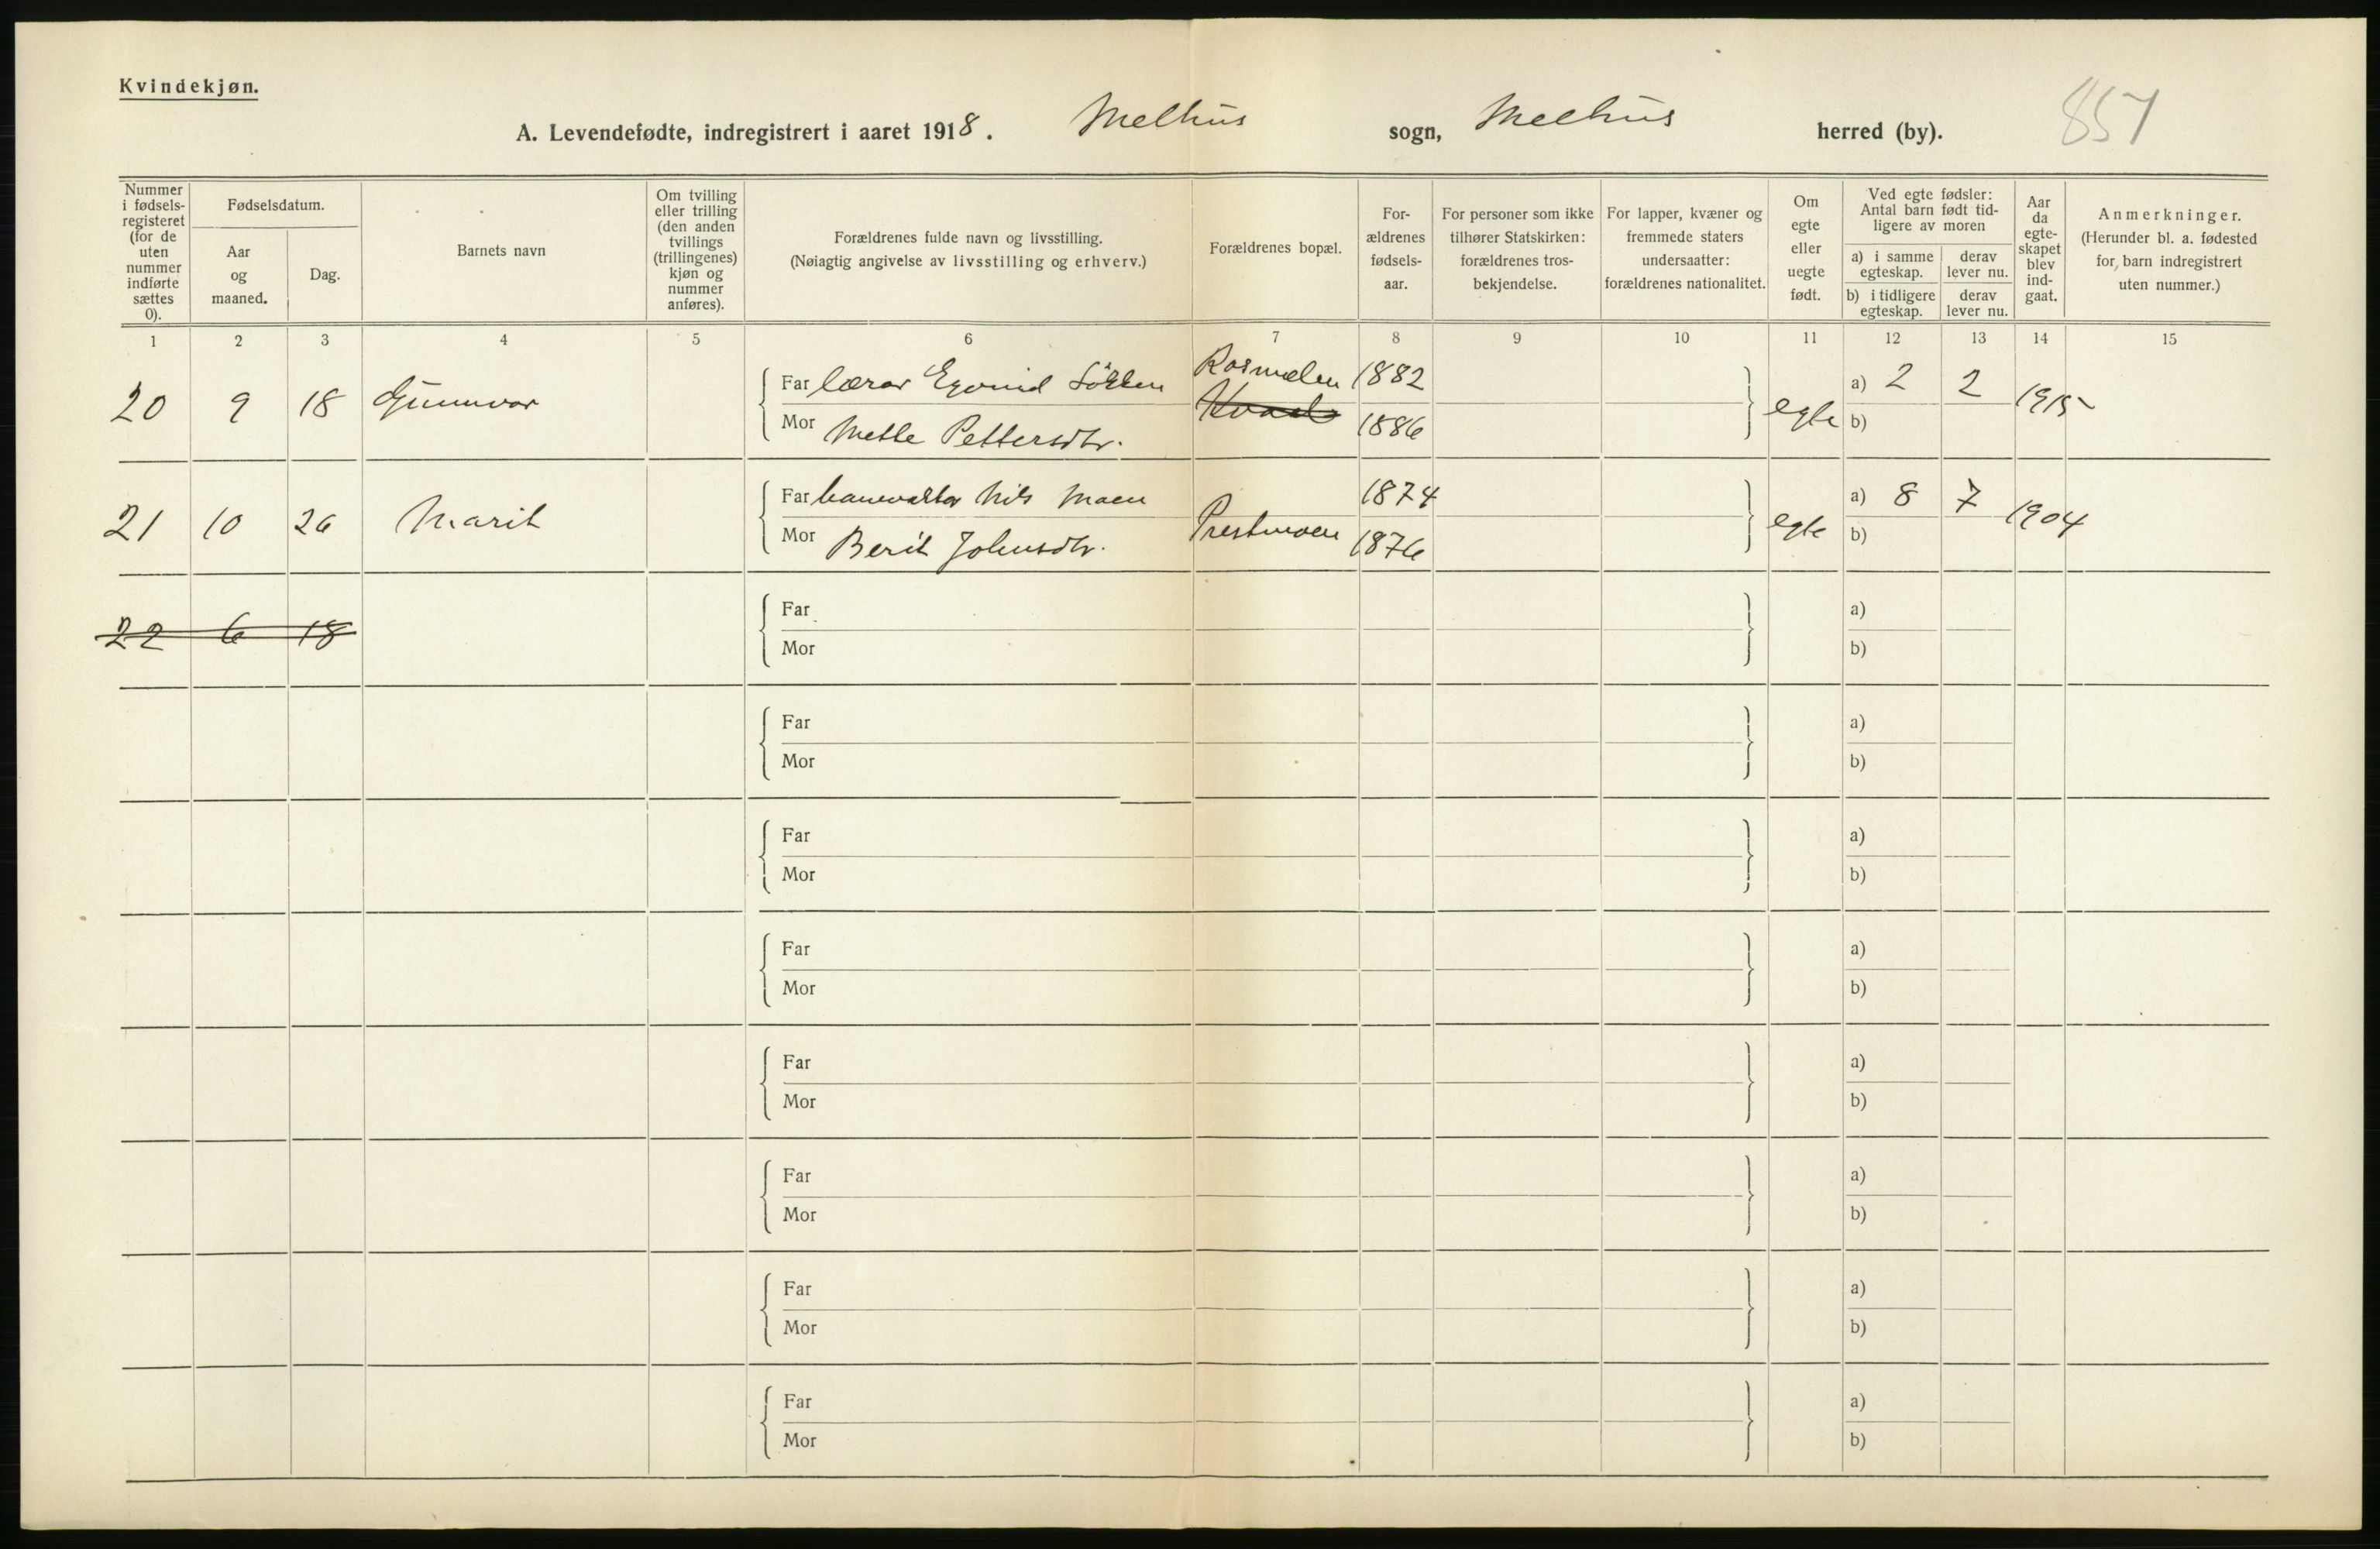 Kvindekjøn.
A. Levendefødte, indregistrert i aaret 1918. Melhus sogn, Melhus herred (by). 857
Nummer i fødsels-registeret (for de uten nummer indførte sættes 0).
Fødselsdatum.
Aar og maaned.
Dag.
Barnets navn
Om tvilling eller trilling (den anden tvillings (trillingenes) kjøn og nummer anføres).
Forældrenes fulde navn og livsstilling.
(Nøiagtig angivelse av livsstilling og erhverv.)
Forældrenes bopæl.
For-ældrenes fødsels-aar.
For personer som ikke tilhører Statskirken: forældrenes tros-bekjendelse.
For lapper, kvæner og fremmede staters undersaatter: forældrenes nationalitet.
Om egte eller uegte født.
Ved egte fødsler: Antal barn født tid-ligere av moren
a) i samme egteskap.
derav lever nu.
b) i tidligere egteskap.
derav lever nu.
Aar da egte-skapet blev ind-gaat.
Anmerkninger.
(Herunder bl. a. fødested for, barn indregistrert uten nummer.)
1 2 3 4 5 6 7 8 9 10 11 12 13 14 15
20 9 18 Gunnvor Far lærer Eyvind Rosmælen 1882 egte a) 2 2 1915
Mor Mette Pettersdtr. Kvaal 1886 b)
21 10 26 Marit Far banevakter Nils Moen Prestmoen 1874 egte a) 8 7 1904
Mor Berit Johnsdtr. 1876 b)
22 6 18 Far a)
Mor b)
Far a)
Mor b)
Far a)
Mor b)
Far a)
Mor b)
Far a)
Mor b)
Far a)
Mor b)
Far a)
Mor b)
Far a)
Mor b)